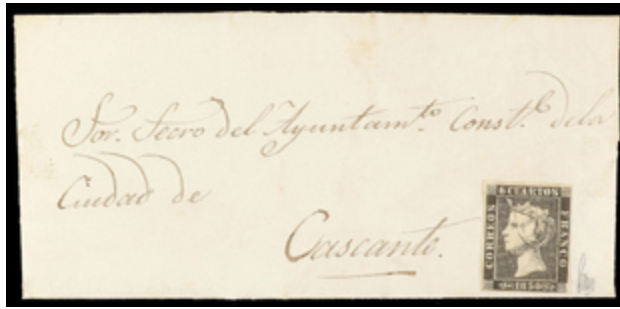 Sor. Secro del Ayuntamto. Constl. dela
Ciudad de
Cascante.
6 CUARTOS
CORREOS
FRANCO
1850